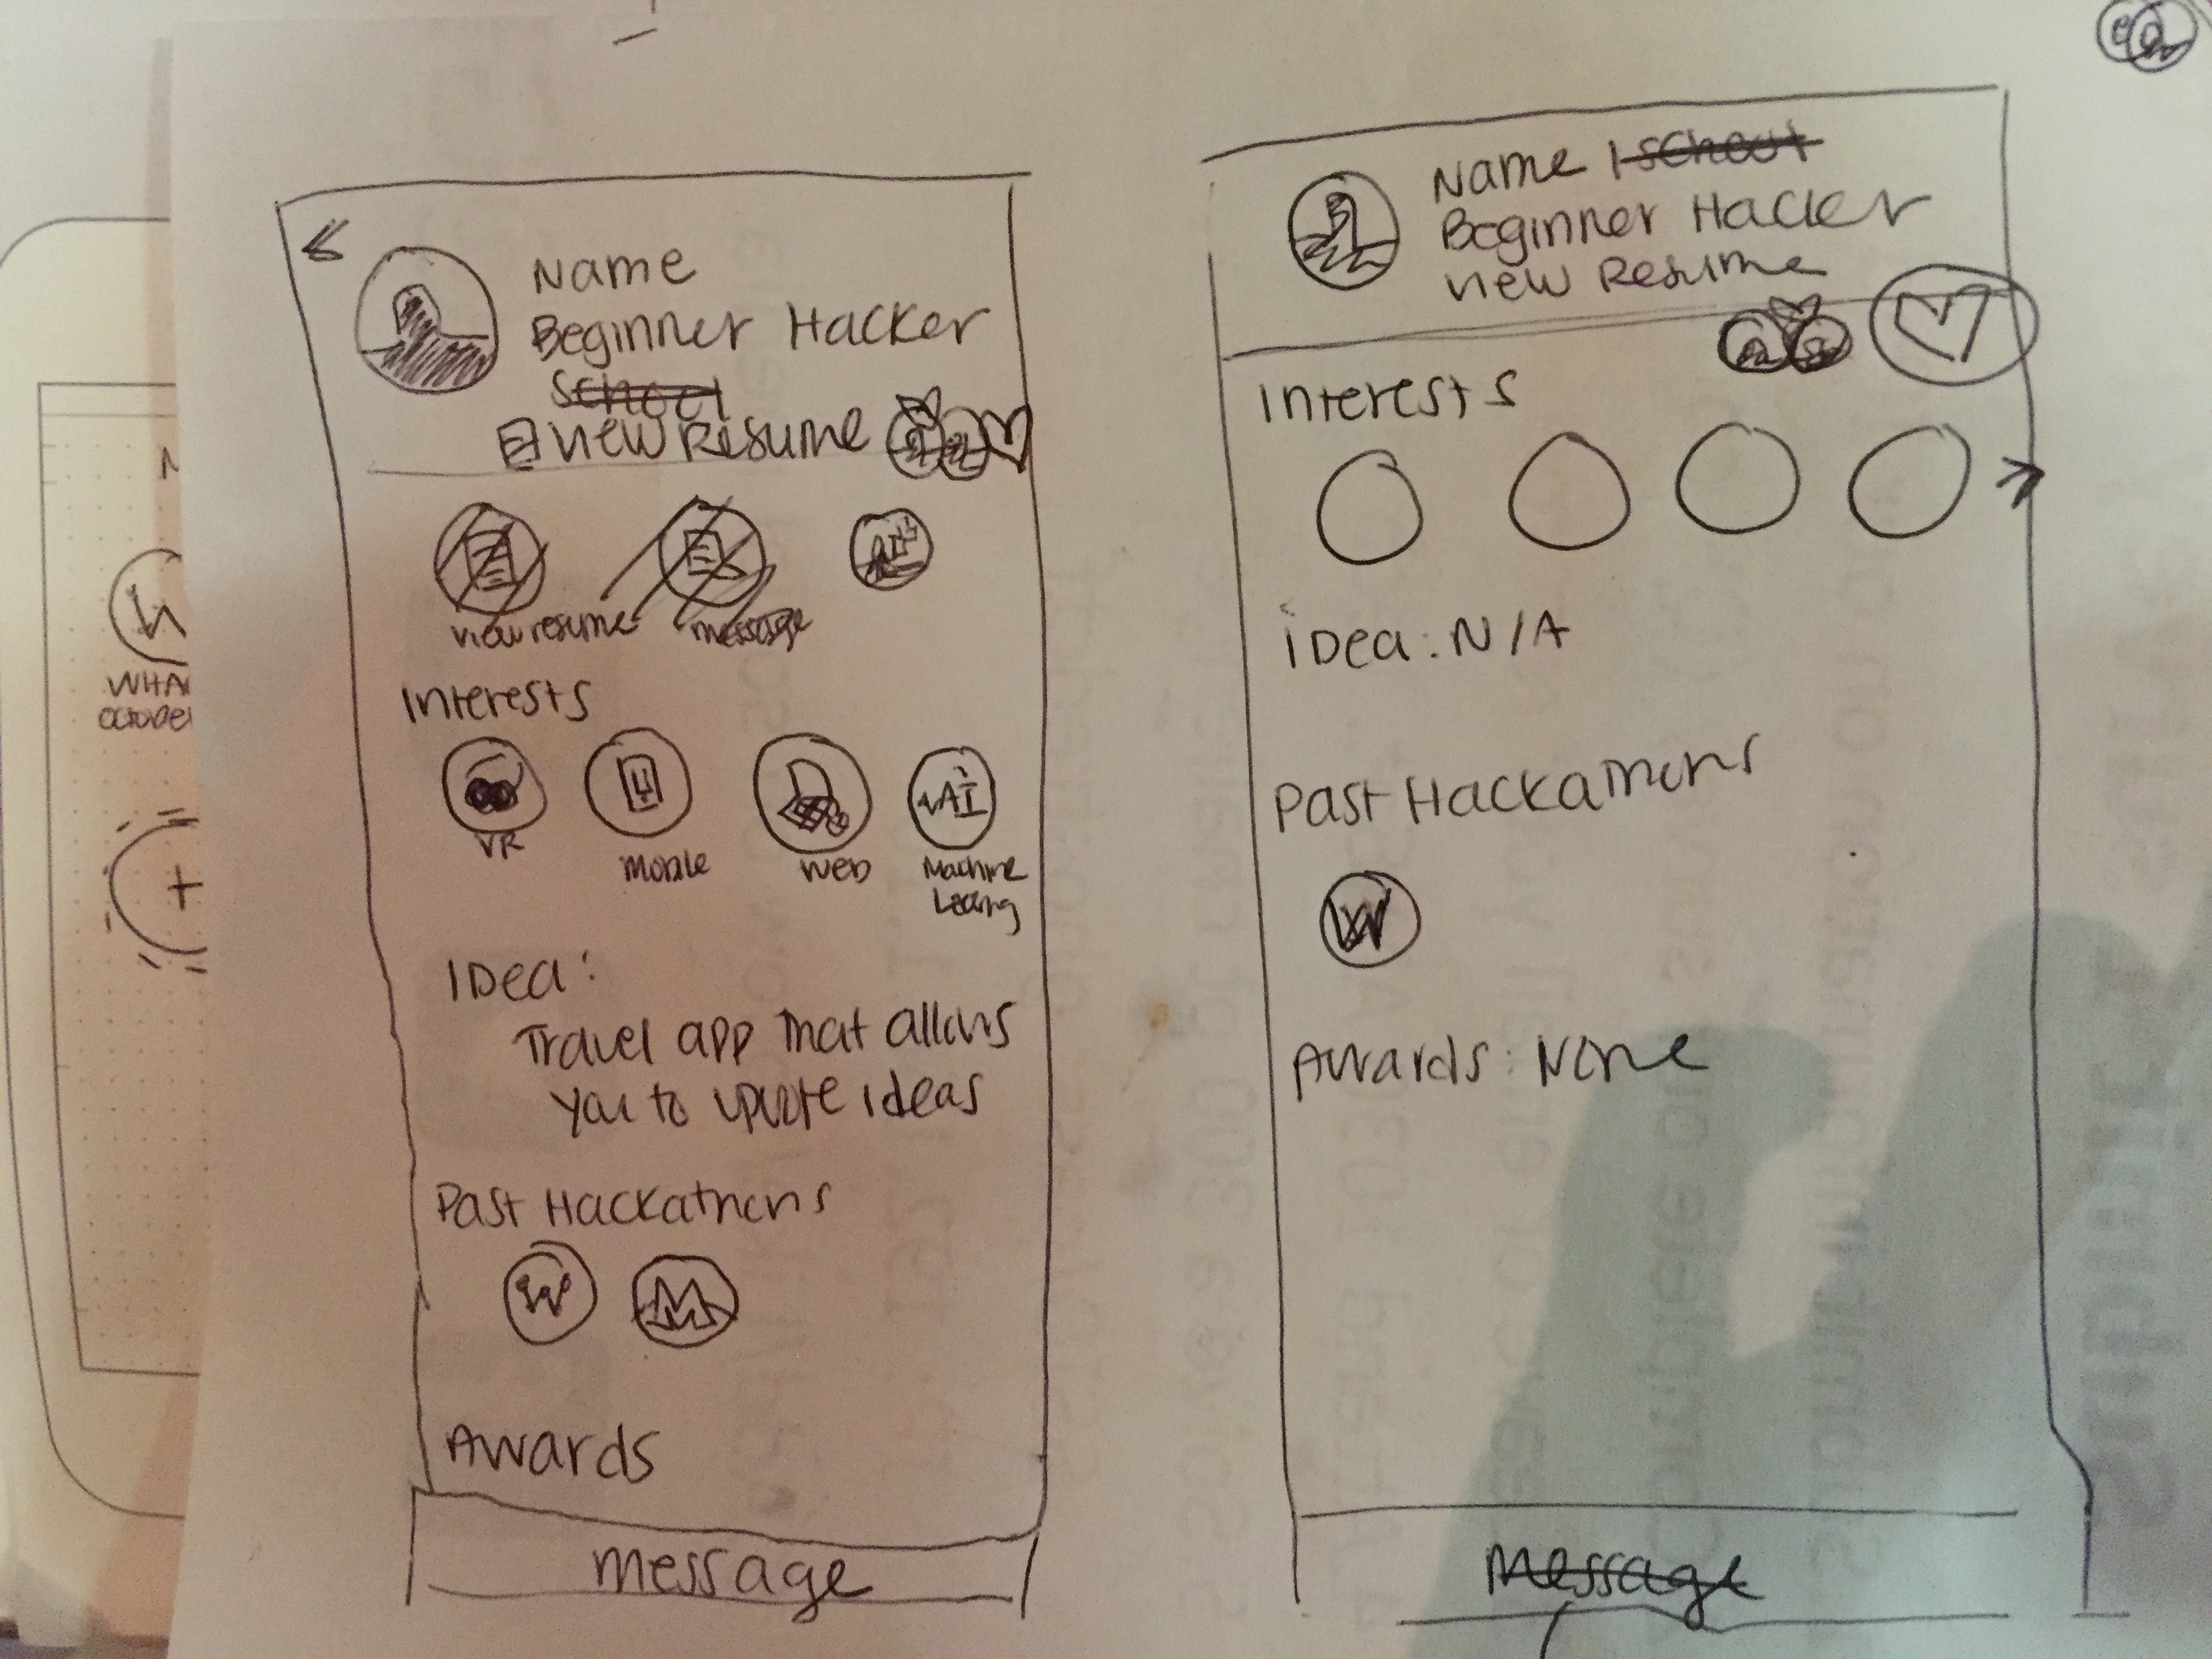 Name
Beginner Hacker
School
View Resume
view resume
message
Interests
VR
Mobile
Web
AI
Machine
Learning
IDea:
Travel app that allows
you to upvote ideas
Past Hackathons
W
M
Awards
message
Name | School
Beginner Hacker
View Resume
Interests
iDea: N/A
Past Hackathons
W
Awards: None
Message
WHA
OCTOBE
+